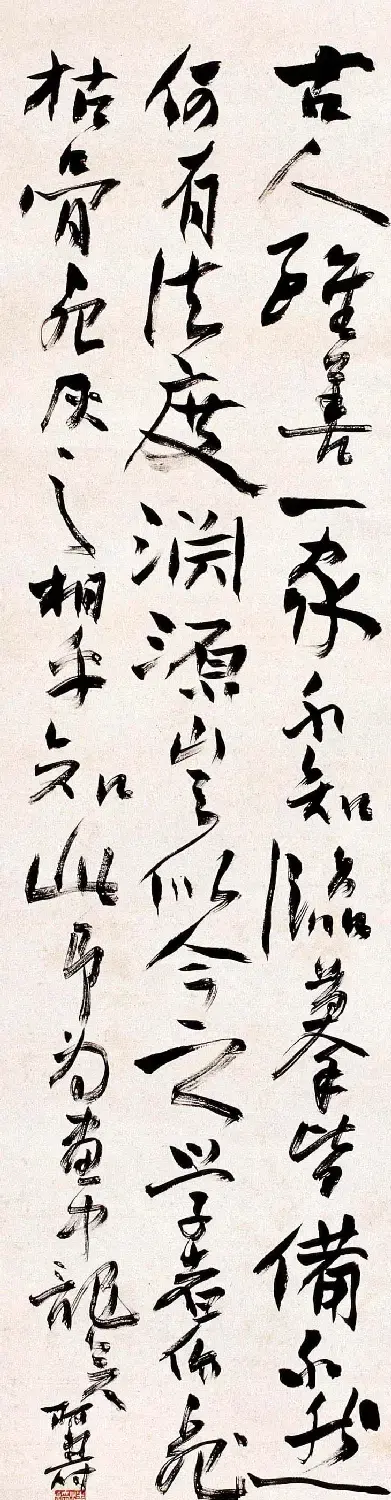 古人雖善一家不知臨摹皆備不然
何有法度淵源豈似今之學者作
枯骨死灰之相乎知此即為畫中龍矣 阿壽